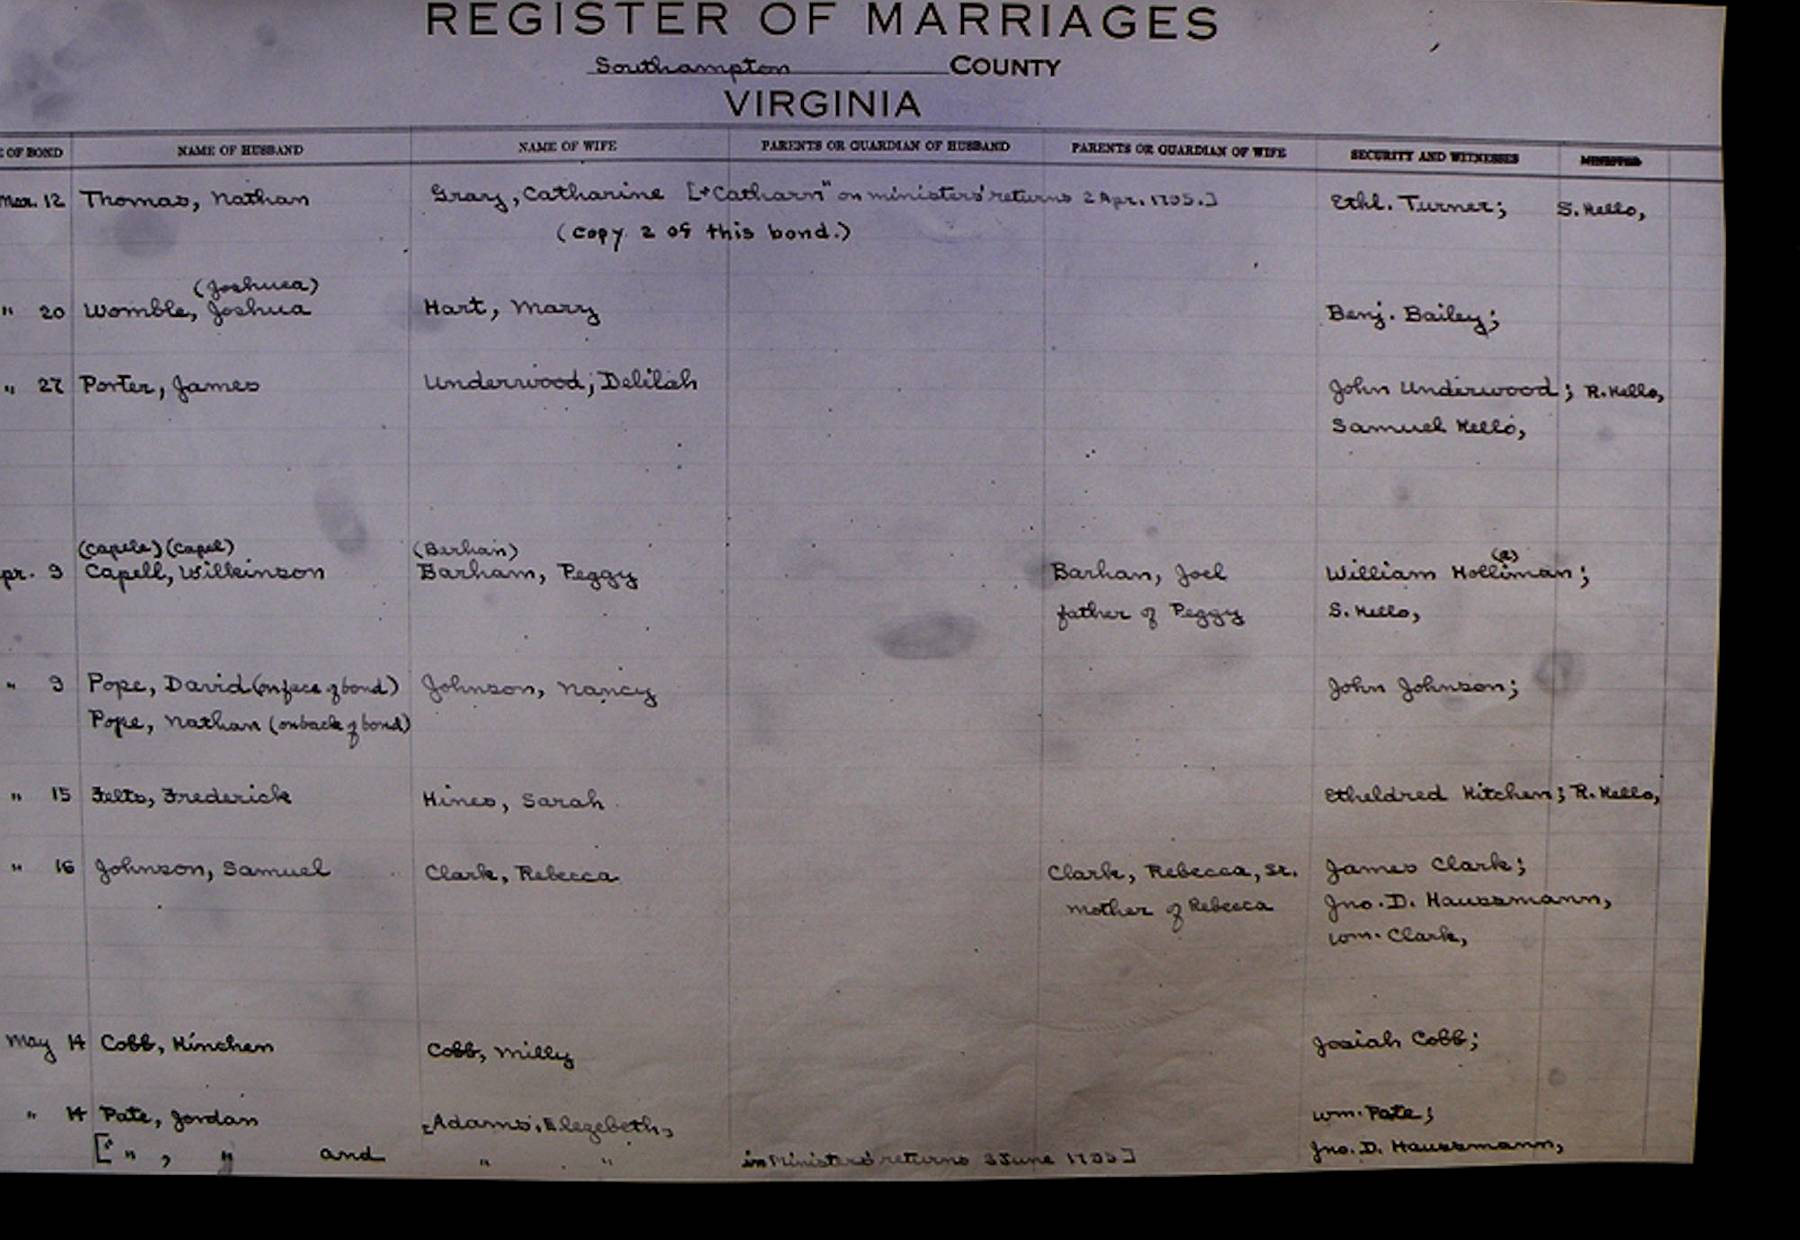 REGISTER OF MARRIAGES
Southampton COUNTY
VIRGINIA
E OF BOND NAME OF HUSBAND NAME OF WIFE PARENTS OR GUARDIAN OF HUSBAND PARENTS OR GUARDIAN OF WIFE SECURITY AND WITNESSES MINISTER
Mar. 12 Thomas, Nathan Gray, Catharine ["Catharn" on ministers' returns 2 Apr. 1795.] Ethl. Turner; S. Kello,
(copy 2 of this bond.)
(Joshuea)
" 20 Womble, Joshua Hart, Mary Benj. Bailey;
" 27 Porter, James Underwood, Delilah John Underwood; R. Kello,
Samuel Kello,
(Capele) (Capel) (Barhan) (a)
pr. 9 Capell, Wilkinson Barham, Peggy Barhan, Joel William Holliman;
father of Peggy S. Kello,
" 9 Pope, David (on face of bond) Johnson, Nancy John Johnson;
Pope, Nathan (on back of bond)
" 15 Felts, Frederick Hines, Sarah Etheldred Kitchen; R. Kello,
" 16 Johnson, Samuel Clark, Rebecca Clark, Rebecca, Sr. James Clark;
mother of Rebecca Jno. D. Haussmann,
Wm. Clark,
May 14 Cobb, Kinchen Cobb, Milly Josiah Cobb;
" 14 Pate, Jordan Adams, Elezebeth, Wm. Pate;
[" " , " and " . " in Ministers' returns 3 June 1795] Jno. D. Haussmann,